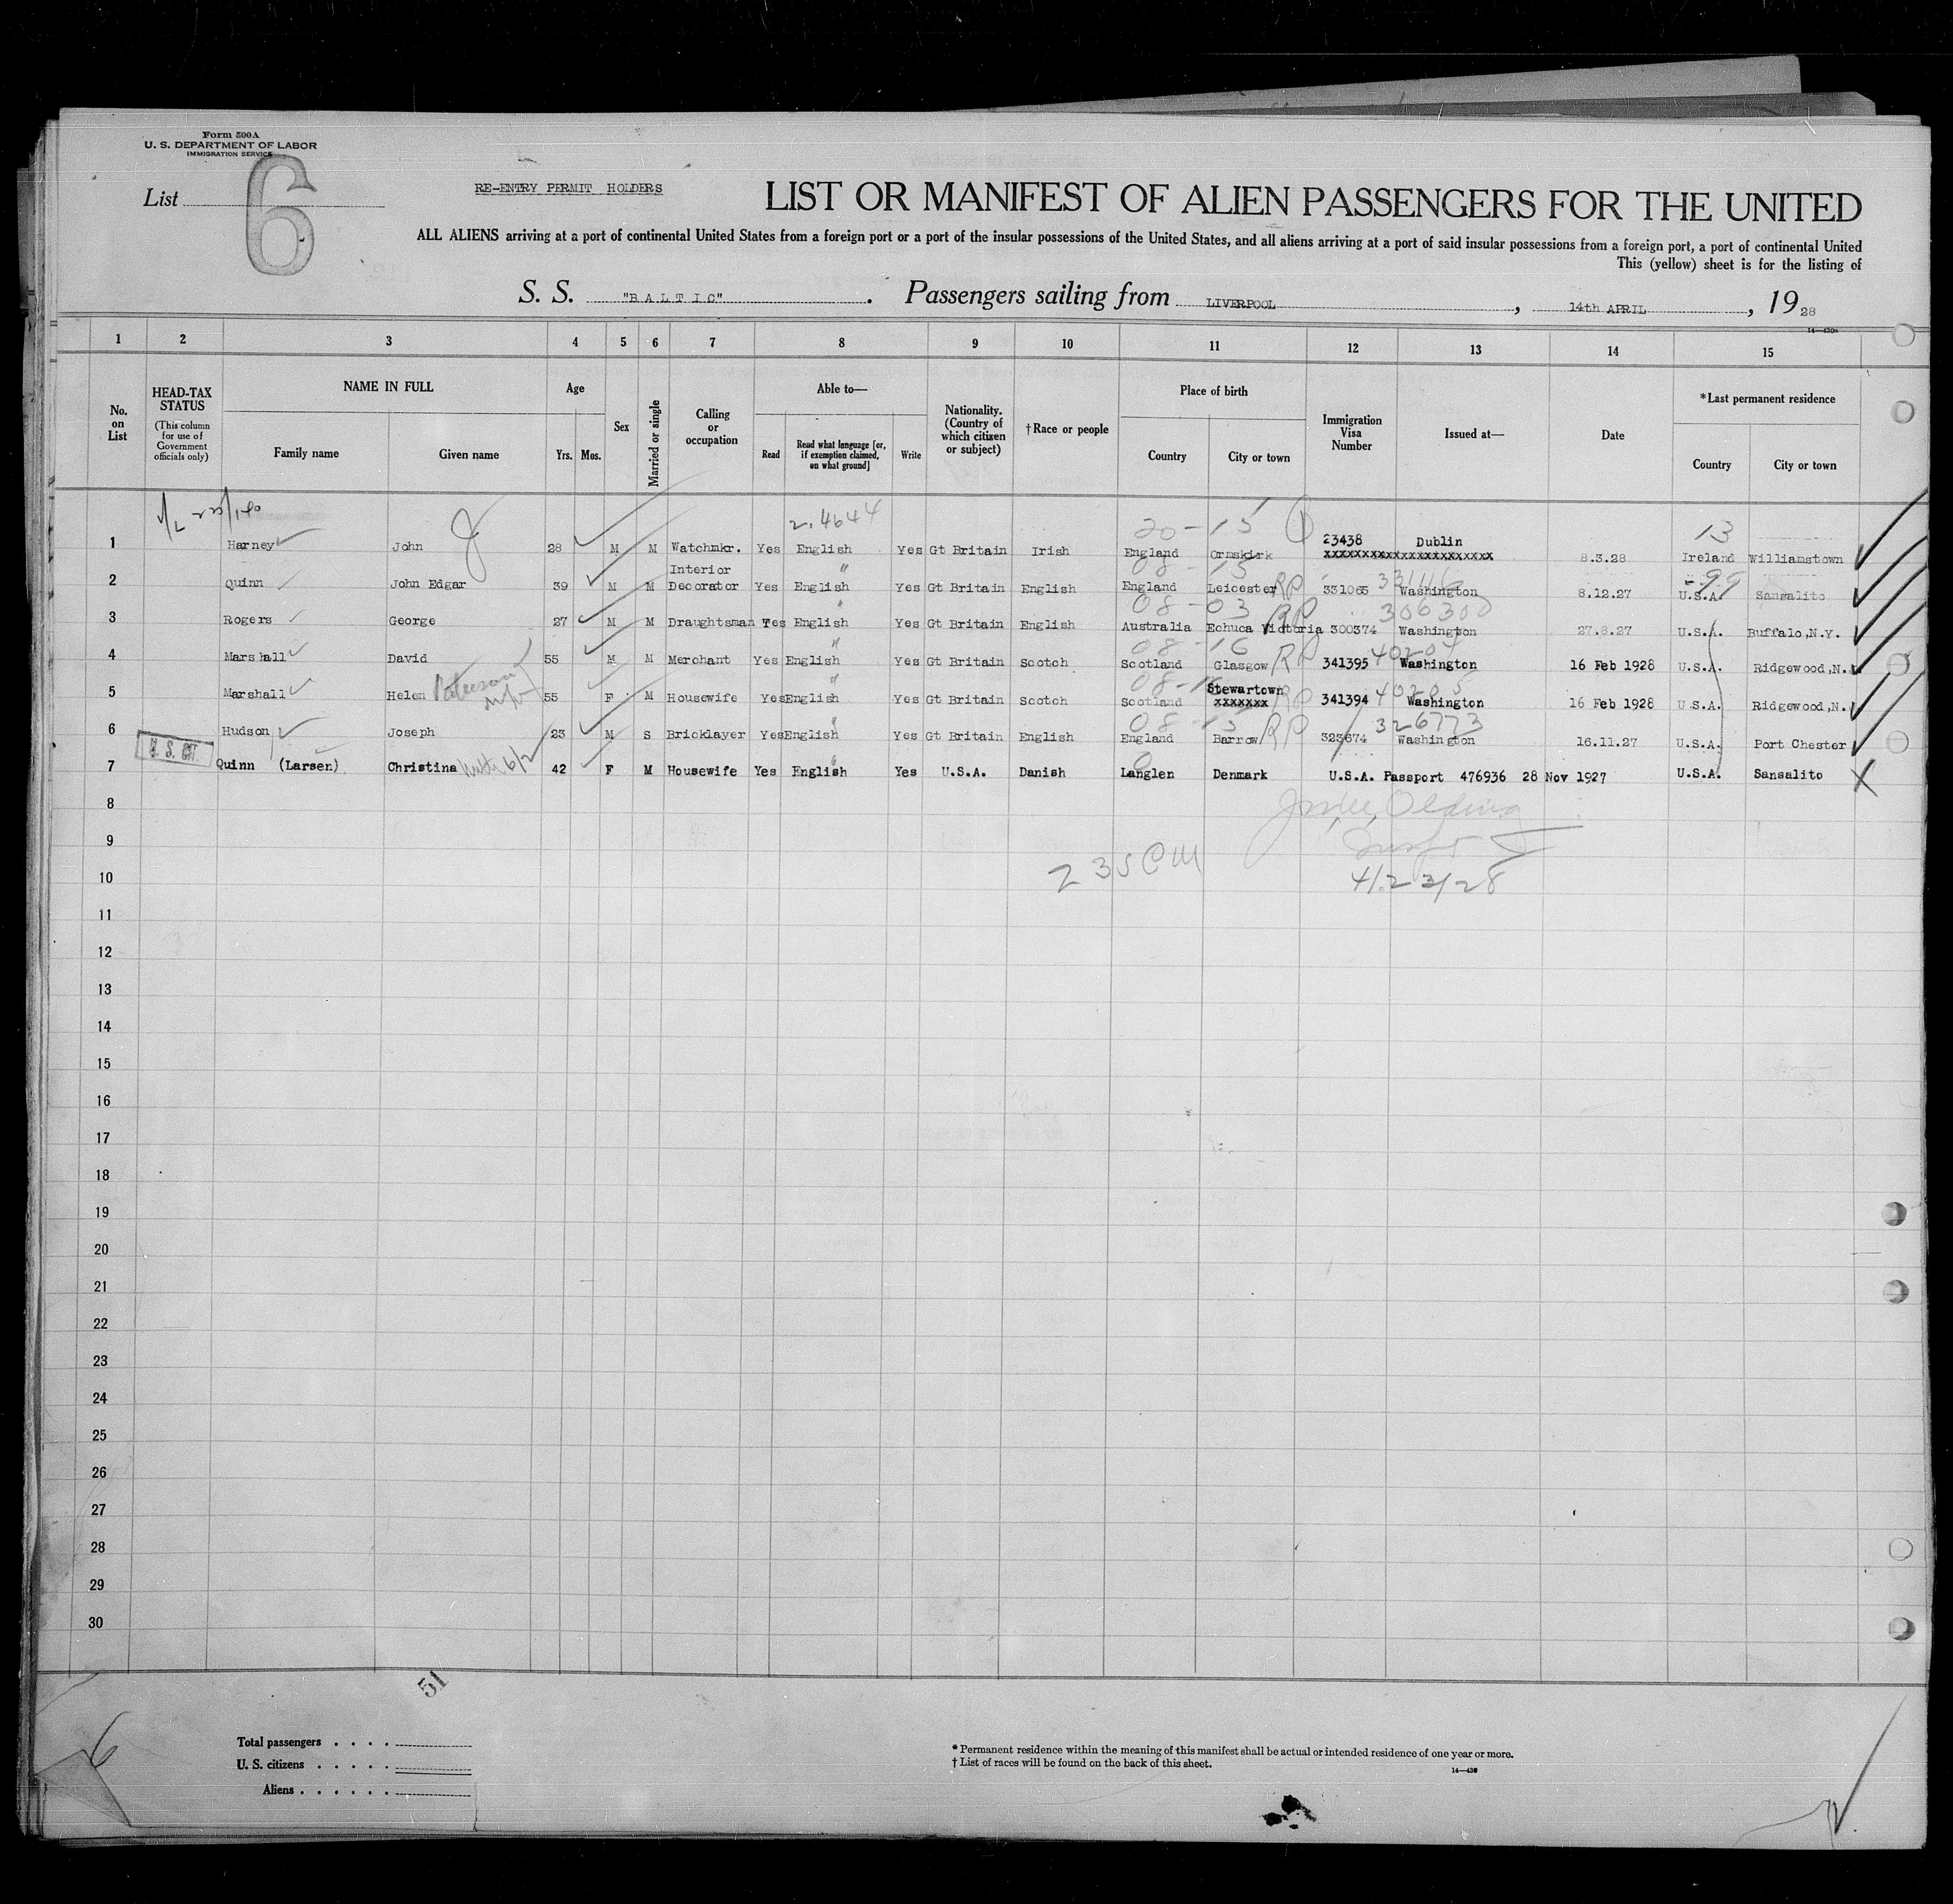 Form 500A
U. S. DEPARTMENT OF LABOR
IMMIGRATION SERVICE
List 6
RE-ENTRY PERMIT HOLDERS
LIST OR MANIFEST OF ALIEN PASSENGERS FOR THE UNITED
ALL ALIENS arriving at a port of continental United States from a foreign port or a port of the insular possessions of the United States, and all aliens arriving at a port of said insular possessions from a foreign port, a port of continental United
This (yellow) sheet is for the listing of
S. S. "BALTIC". Passengers sailing from LIVERPOOL, 14th APRIL, 1928
14—430a
1 2 3 4 5 6 7 8 9 10 11 12 13 14 15
No. on List
HEAD-TAX STATUS (This column for use of Government officials only)
NAME IN FULL Family name Given name
Age Yrs. Mos.
Sex
Married or single
Calling or occupation
Able to— Read Read what language [or, if exemption claimed, on what ground] Write
Nationality. (Country of which citizen or subject)
†Race or people
Place of birth Country City or town
Immigration Visa Number
Issued at—
Date
*Last permanent residence Country City or town
2.4644 20-15 13
1 Harney John 28 M M Watchmkr. Yes English Yes Gt Britain Irish England Ormskirk 23438 Dublin xxxxxxxxxxxxxxxxxxxxxxx 8.3.28 Ireland Williamstown
08-15 99
2 Quinn John Edgar 39 M M Interior Decorator Yes English Yes Gt Britain English England Leicester RP 331065 Washington 8.12.27 U.S.A. Sansalito
08-03 306300
3 Rogers George 27 M M Draughtsman Yes English Yes Gt Britain English Australia Echuca Victoria RP 300374 Washington 27.8.27 U.S.A. Buffalo,N.Y.
08-16 40204
4 Marshall David 55 M M Merchant Yes English Yes Gt Britain Scotch Scotland Glasgow RP 341395 Washington 16 Feb 1928 U.S.A. Ridgewood,N.
08-16 40205
5 Marshall Helen Paterson 55 F M Housewife Yes English Yes Gt Britain Scotch Scotland Stewartown xxxxxxx RP 341394 Washington 16 Feb 1928 U.S.A. Ridgewood,N.
08-13 326773
6 Hudson Joseph 23 M S Bricklayer Yes English Yes Gt Britain English England Barrow RP 323674 Washington 16.11.27 U.S.A. Port Chester
U. S. CIT.
7 Quinn (Larsen) Christina with 6/2 42 F M Housewife Yes English Yes U.S.A. Danish Langlen Denmark U.S.A. Passport 476936 28 Nov 1927 U.S.A. Sansalito X
8
9
10 4/23/28
11
12
13
14
15
16
17
18
19
20
21
22
23
24
25
26
27
28
29
30
51
6
Total passengers
U. S. citizens
Aliens
* Permanent residence within the meaning of this manifest shall be actual or intended residence of one year or more.
† List of races will be found on the back of this sheet.
14—430